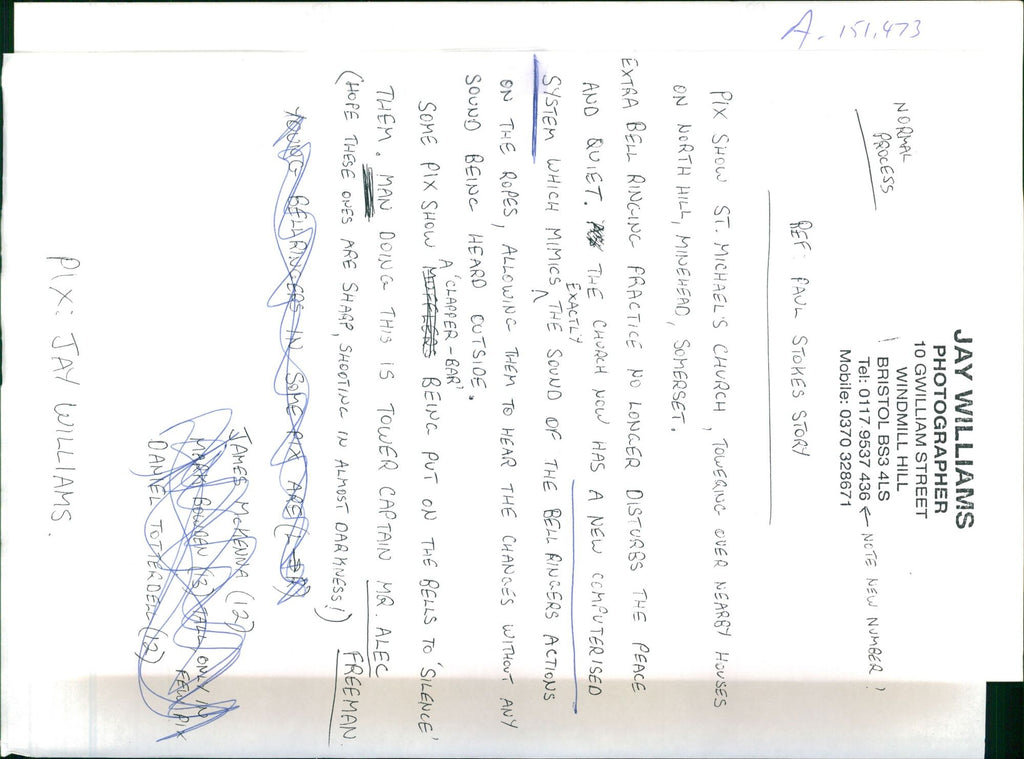 A. 151,473
JAY WILLIAMS
PHOTOGRAPHER
10 GWILLIAM STREET
WINDMILL HILL
BRISTOL BS3 4LS
Tel: 0117 9537 436 ← NOTE NEW NUMBER!
Mobile: 0370 328671
NORMAL
PROCESS
REF: PAUL STOKES STORY
PIX SHOW ST. MICHAEL'S CHURCH, TOWERING OVER NEARBY HOUSES
ON NORTH HILL, MINEHEAD, SOMERSET.
EXTRA BELL RINGING PRACTICE NO LONGER DISTURBS THE PEACE
AND QUIET. THE CHURCH NOW HAS A NEW COMPUTERISED
SYSTEM WHICH MIMICS EXACTLY THE SOUND OF THE BELL RINGERS ACTIONS
ON THE ROPES, ALLOWING THEM TO HEAR THE CHANGES WITHOUT ANY
SOUND BEING HEARD OUTSIDE.
A 'CLAPPER-BAR'
SOME PIX SHOW MUFFLERS BEING PUT ON THE BELLS TO 'SILENCE'
THEM. MAN DOING THIS IS TOWER CAPTAIN MR. ALEC
FREEMAN.
(HOPE THESE ONES ARE SHARP, SHOOTING IN ALMOST DARKNESS!)
YOUNG BELLRINGERS IN SOME PIX ARE (L-R)
JAMES McKENNA (12)
MARK BOWDEN (13) TALL, ONLY IN FEW PIX
DANIEL TOTTERDELL (12)
PIX: JAY WILLIAMS.